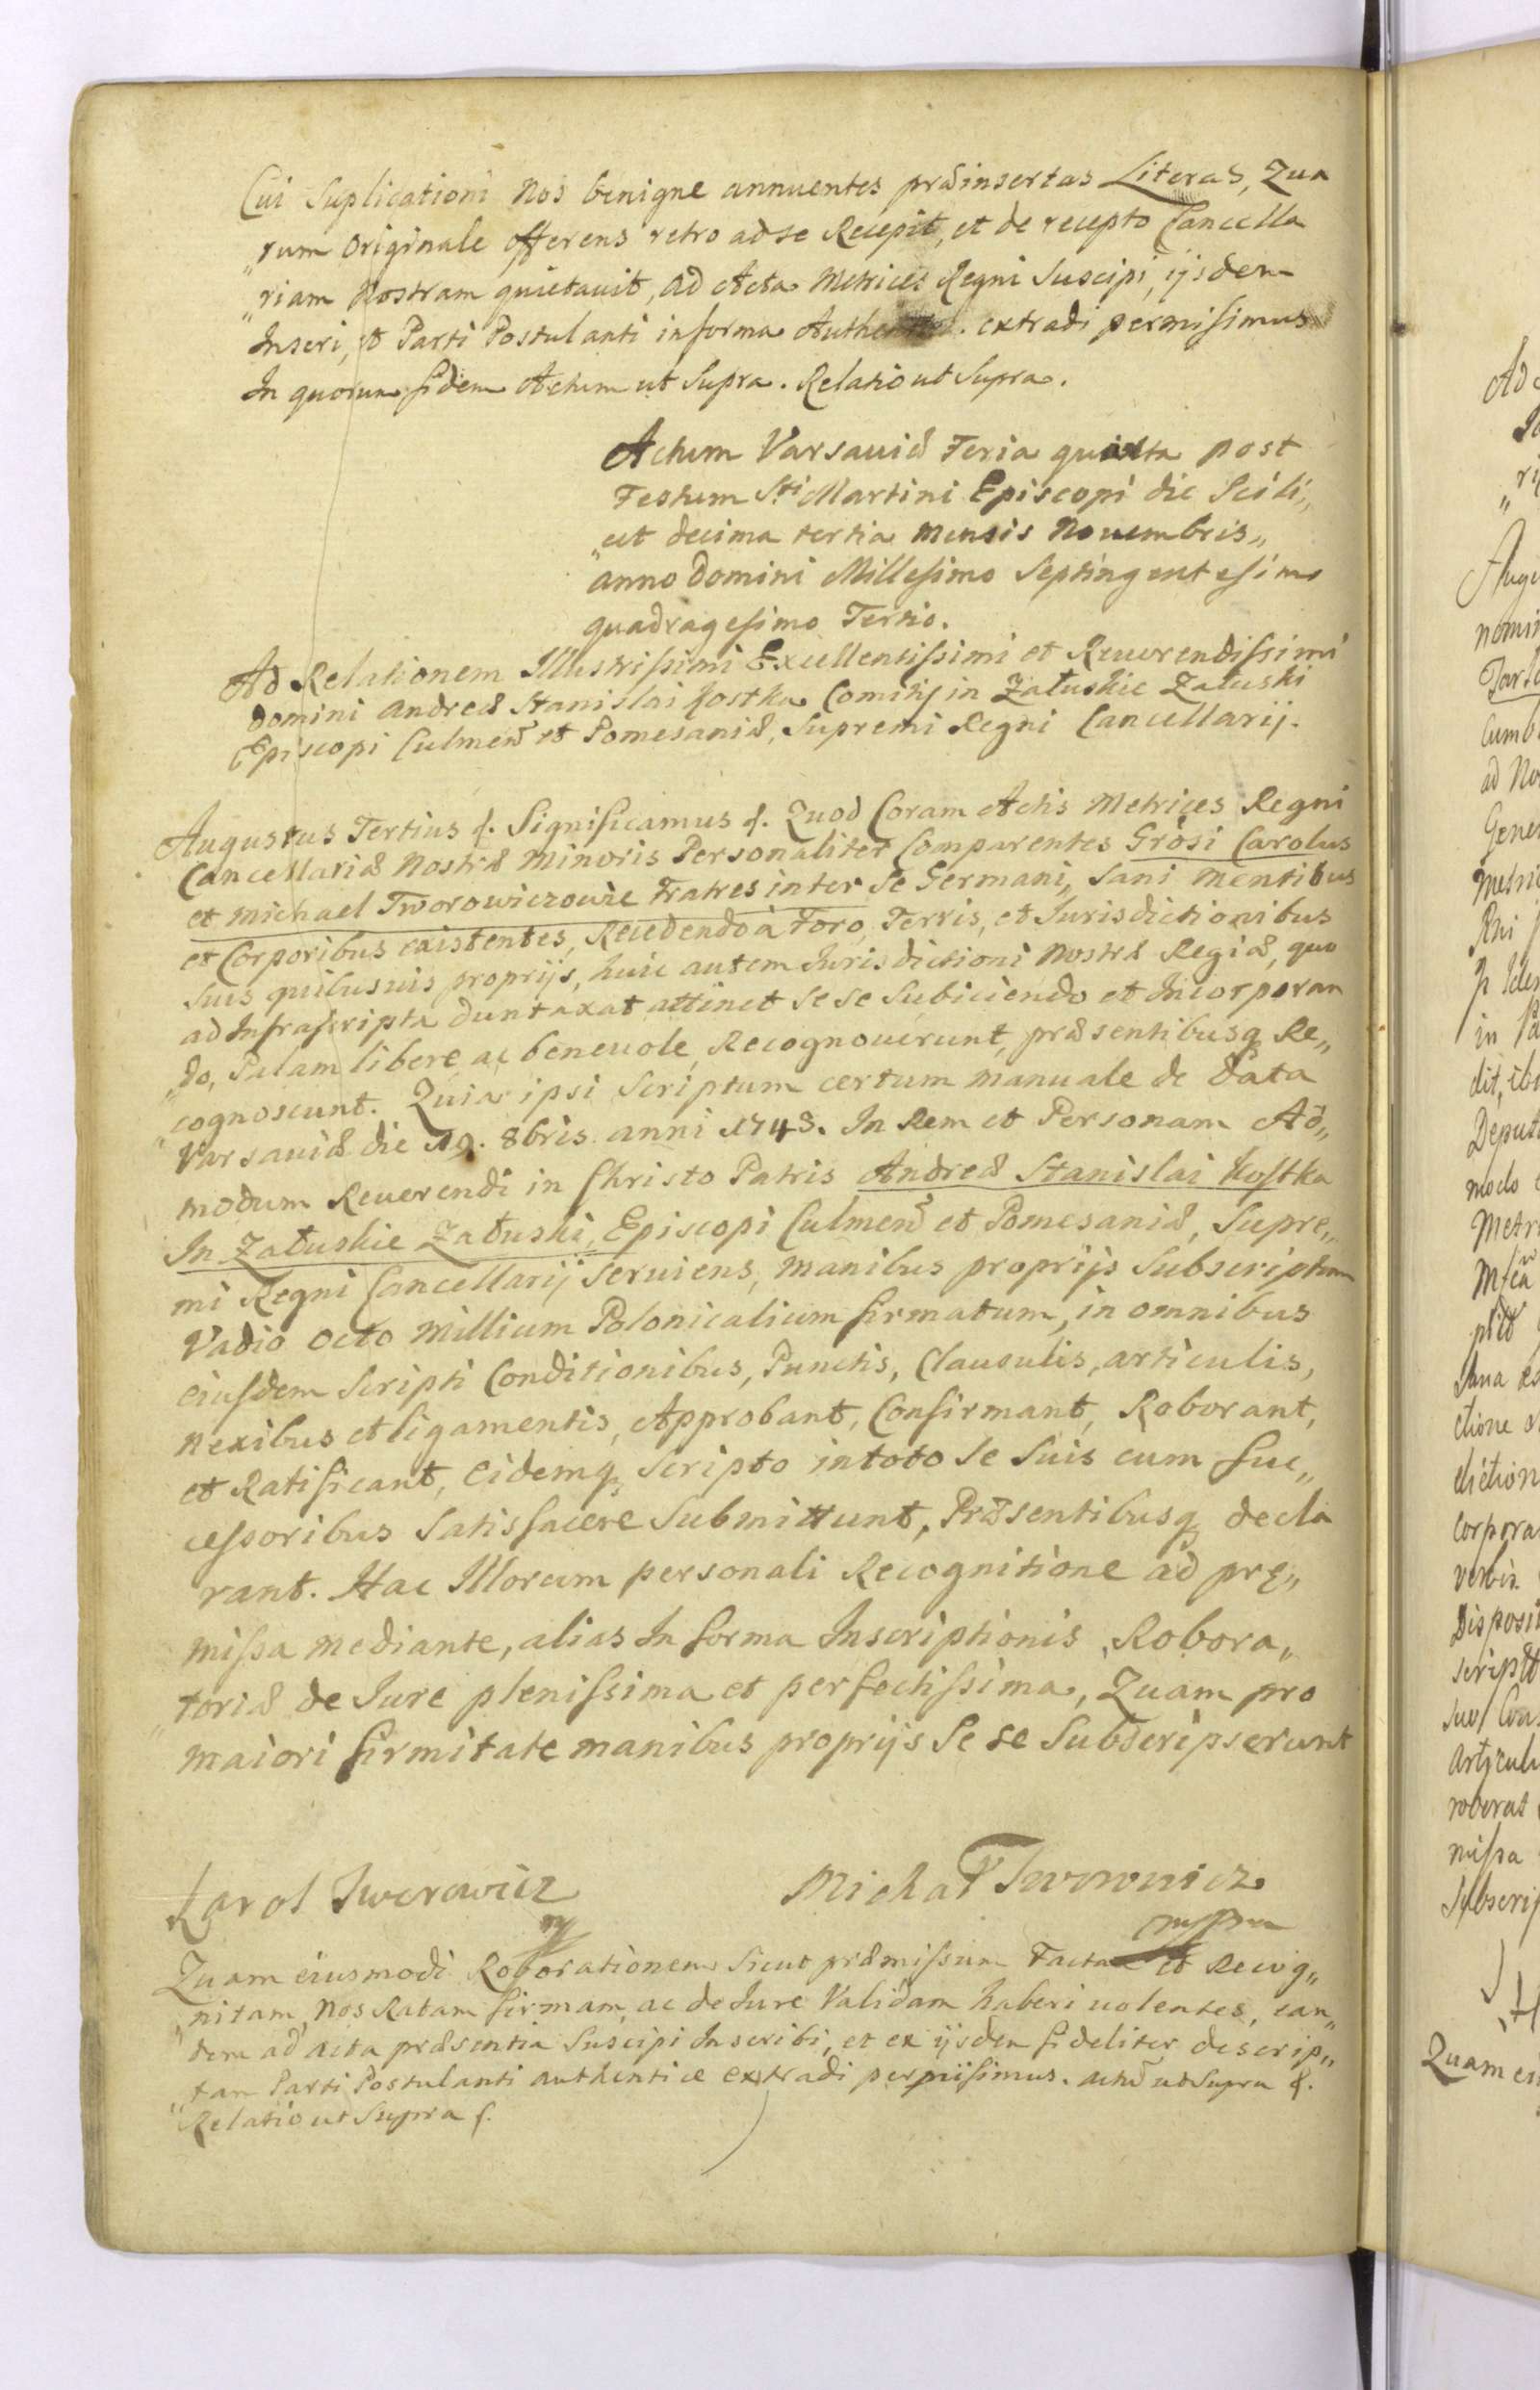 Cui Suplicationi Nos benigne annuentes præinsertas Literas, Qua
"rum Originale offerens retro ad se Recepit, et de recepto Cancella
"riam Nostram quietauit, ad Acta Metrices Regni Suscipi, ijsdem
Inseri, et Parti Postulanti in forma extradi permisimus
In quorum fidem Actum ut Supra. Relatio ut Supra.
Actum Varsaviæ Feria quarta post
Festum Sti Martini Episcopi die Scili„
„cet decima tertia Mensis Novembris„
anno Domini Millesimo Septingentesimo
quadragesimo Tertio.
Ad Relationem Illustrissimi Excellentissimi et Reuerendissimi
Domini Andreæ Stanislai Kostka Comitis in Załuskie Załuski
Episcopi Culmen̄ et Pomesaniæ, Supremi Regni Cancellarij.
Augustus Tertius &. Significamus &. Quod Coram Actis Metrices Regni
Cancellariæ Nostræ Minoris Personaliter Comparentes Grosi Carolus
et Michael Tworowiczowie Fratres inter Se Germani, Sani Mentibus
et Corporibus existentes, Recedendo à Foro, Terris, et Jurisdictionibus
Suis quibusuis proprijs, huic autem Jurisdictioni Nostræ Regiæ, quo
ad Infrascripta duntaxat attinet Se se Subiiciendo et Incorporan
„do, Palam libere ac beneuole Recognouerunt, præsentibusq Re„
„cognoscunt. Quia ipsi Scriptum certum manuale de Data
Varsaviæ die 19. 8bris anni 1743. In Rem et Personam Ad„
modum Reuerendi in Christo Patris Andreæ Stanislai Kostka
In Załuskie Załuski, Episcopi Culmen̄ et Pomesaniæ, Supre„
mi Regni Cancellarij Seruiens, manibus proprijs Subscriptum
Vadio octo Millium Polonicalium firmatum, in omnibus
eiusdem Scripti Conditionibus, Punctis, Clausulis, articulis,
nexibus et ligamentis, Approbant, Confirmant, Roborant,
et Ratificant, Eidemq Scripto in toto Se Suis cum Suc„
cessoribus Satisfacere Submittunt, Præsentibusq decla
rant. Hac Illorum personali Recognitione ad prę„
missa mediante, alias In forma Inscriptionis Robora„
„toriæ de Jure plenissima et perfectissima, Quam pro
maiori firmitate manibus proprijs Se se Subscripserunt
Karol Tworowicz
Michał Tworowicz
Quam eiusmodi Roborationem Sicut præmissum Facta et Recog„
„nitam, Nos Ratam firmam, ac de Jure Validam haberi uolentes, ean„
„dem ad acta præsentia Suscipi Inscribi, et ex ijsdem fideliter descrip„
„tam Parti Postulanti authentice extradi permisimus. actu̅ ut Supra &.
Relatio ut Supra &.